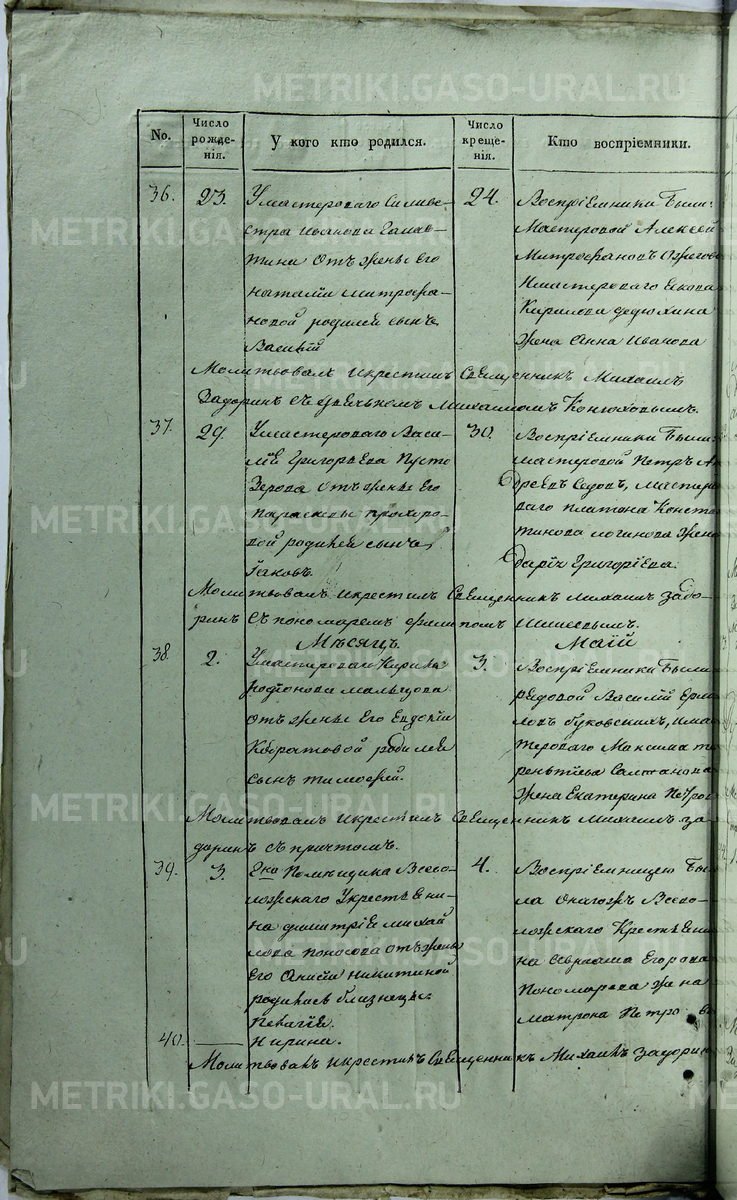 METRIKI.GASO-URAL.RU
No.
Число рожде- нія.
У кого кто родился.
Число креще- нія.
Кто воспріемники.
36.
23.
У мастероваго Сильве-
стра Иванова
отъ жены его
Наталіи Митрофа-
новой родился сынъ
Василій
24.
Воспріемники были:
Мастеровой Алексей
Митрофановъ
и мастероваго
Кирилова Федюхина
жена Анна Иванова
Молитвовалъ и крестилъ Священникъ Михаилъ
Задоринъ съ Михаиломъ Конюховымъ.
37.
29.
У мастероваго Васи-
лія Григорьева Пусто
зерова отъ жены его
Параскевы Прохоро-
вой родился сынъ
Іаковъ.
30.
Воспріемники были:
мастеровой Петръ Ан
дреевъ Седовъ, мастеро
ваго Платона Конста
тинова Логинова жена
Дарія Григоріева.
Молитвовалъ и крестилъ Священникъ Михаилъ Задо-
ринъ съ пономаремъ Филипомъ
Мѣсяцъ Маій
38.
2.
У мастероваго Кирила
Родіонова Мальцова
отъ жены его Евдокіи
родился
сынъ Тимофей.
3.
Воспріемники были
Василій Ерми
ловъ и мас
тероваго Максима Те
рентьева Салтанова
жена Екатерина Петров
Молитвовалъ и крестилъ Священникъ Михаилъ За-
доринъ съ причтомъ.
39.
3.
Помѣщика Всево-
ложскаго У крестьяни-
на Димитрія Михай
лова Поносова отъ жены
его Анисіи Никитиной
родились близнецы:
Пелагія.
4.
Воспріемницею бы-
ла онагожъ Всево-
ложскаго крестьяни
на Авраама Егорова
Пономарева жена
Матрона Петро ва
40.
Ирина.
Молитвовалъ и крестилъ Священникъ Михаилъ Задорин